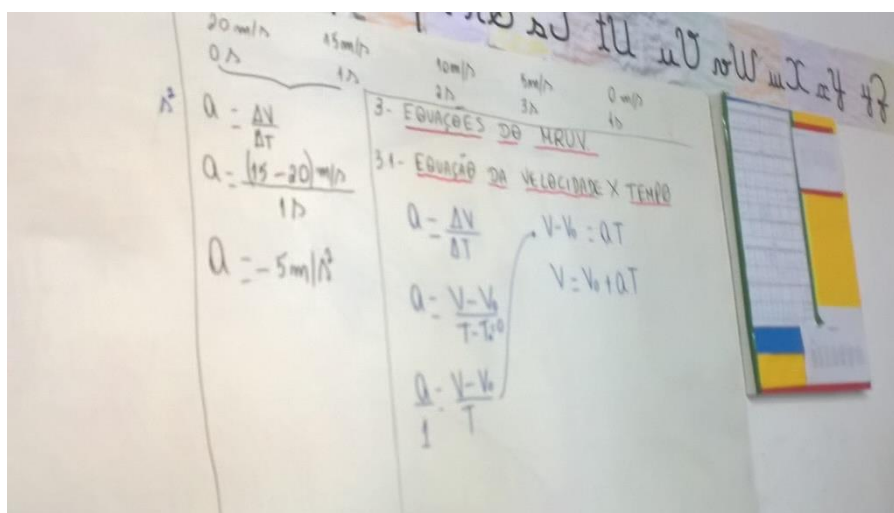 20m/s 15m/s 10m/s 5m/s 0m/s
0s 1s 2s 3s 4s
s²
a = ΔV
ΔT
a = (15-20)m/s
1s
a = -5m/s²
3- EQUAÇÕES DO MRUV.
3.1- EQUAÇÃO DA VELOCIDADE X TEMPO
a = ΔV
ΔT
a = V-V₀
T-T₀=0
a = V-V₀
1 T
V-V₀ = aT
V = V₀ + aT
sS tT uU vV wW xX yY z